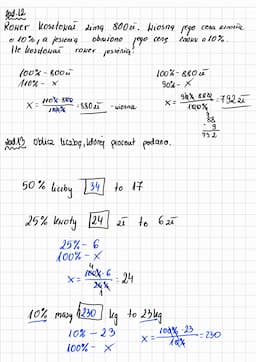 zad.12
Rower kosztował zimą 800zł. Wiosną jego cena wzrosła
o 10%, a jesienią obniżono jego cenę o 10%.
Ile kosztował rower jesienią?
100% - 800zł
110% - x
x = 110% · 800 / 100% = 880zł - wiosna
100% - 880zł
90% - x
x = 90% · 880 / 100% = 792zł
88
· 9
792
zad.13 Oblicz liczbę, której procent podano.
50% liczby 34 to 17
25% kwoty 24 zł to 6zł
25% - 6
100% - x
x = 100% · 6 / 25% = 24
10% masy 230 kg to 23kg
10% - 23
100% - x
x = 100% · 23 / 10% = 230